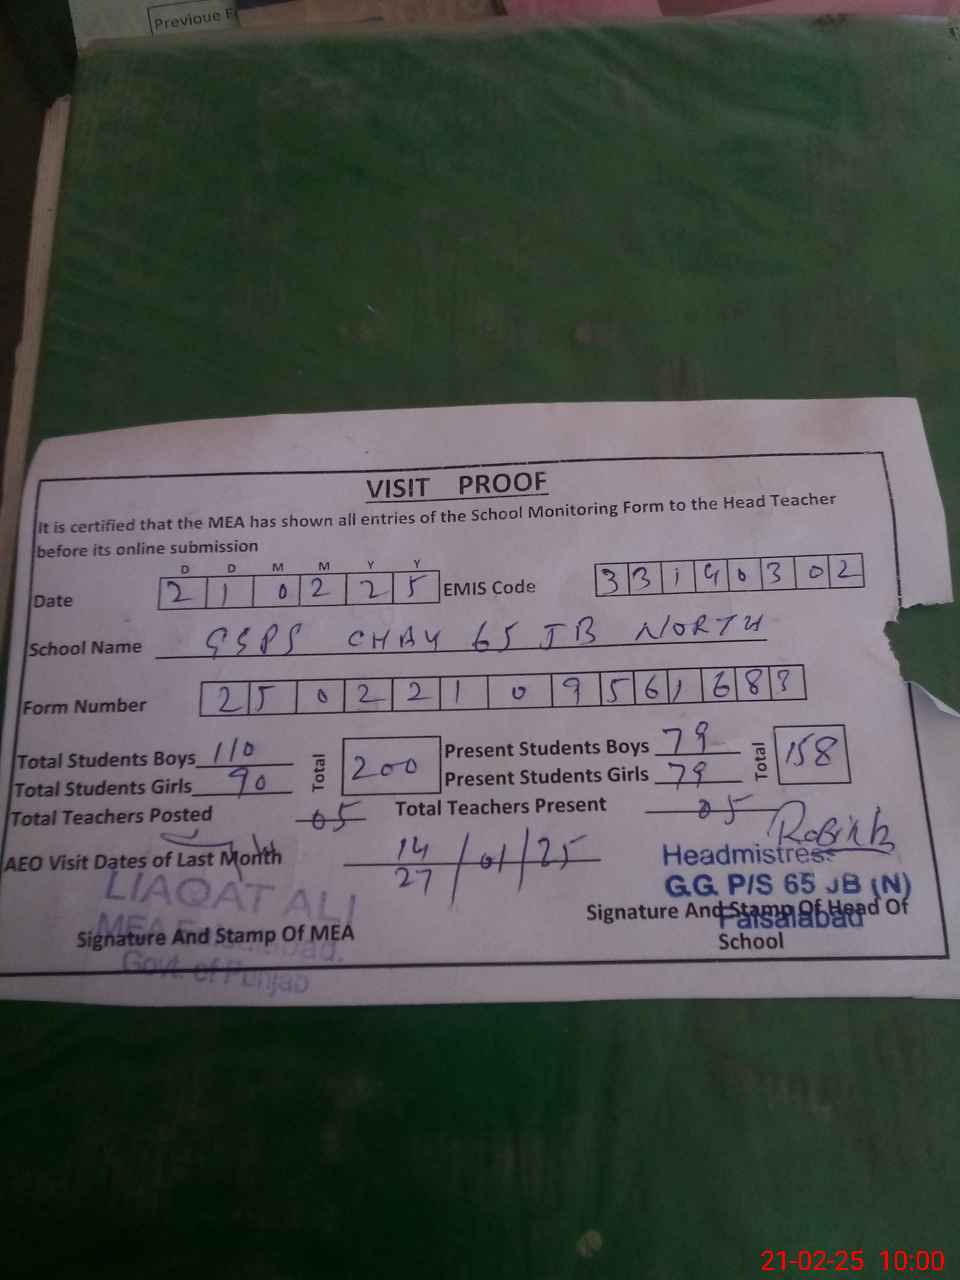 Previous F
VISIT PROOF
It is certified that the MEA has shown all entries of the School Monitoring Form to the Head Teacher
before its online submission
D D M M Y Y
Date 2 1 0 2 2 5 EMIS Code 3 3 1 4 0 3 0 2
School Name GGPS CHAK 65 JB NORTH
Form Number 2 5 0 2 2 1 0 9 5 6 1 6 8 3
Total Students Boys 110 Total 200 Present Students Boys 79 Total 158
Total Students Girls 90 Present Students Girls 79
Total Teachers Posted 05 Total Teachers Present 05
AEO Visit Dates of Last Month 14 27 /01/25
Headmistress
G.G. P/S 65 JB (N)
Faisalabad
LIAQAT ALI
MEA Faisalabad.
Govt. of Punjab
Signature And Stamp Of MEA
Signature And Stamp Of Head Of
School
21-02-25 10:00